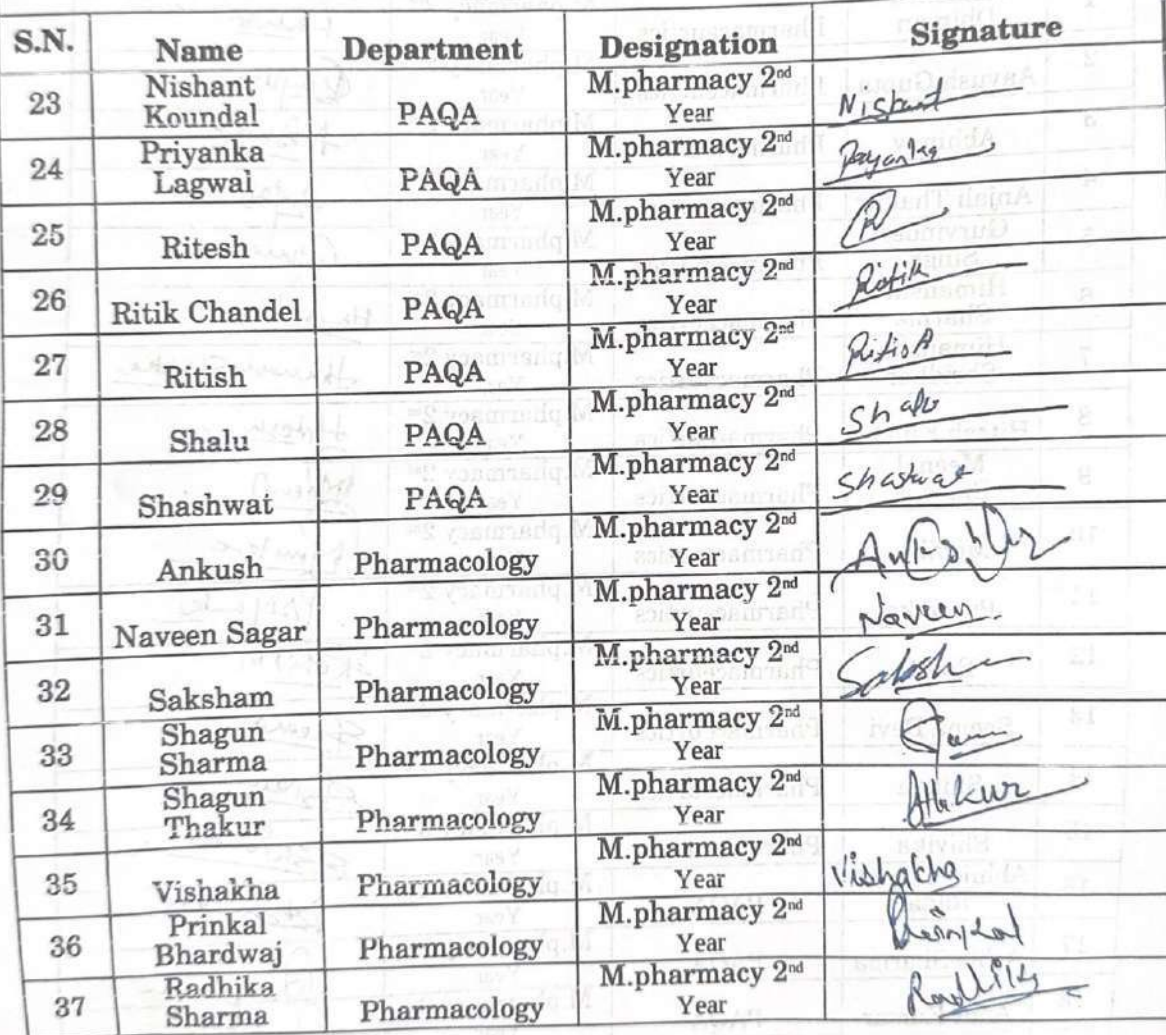 S.N. Name Department Designation Signature
23 Nishant Koundal PAQA M.pharmacy 2nd Year Nishant
24 Priyanka Lagwal PAQA M.pharmacy 2nd Year Priyanka
25 Ritesh PAQA M.pharmacy 2nd Year
26 Ritik Chandel PAQA M.pharmacy 2nd Year Ritik
27 Ritish PAQA M.pharmacy 2nd Year Ritish
28 Shalu PAQA M.pharmacy 2nd Year Shalu
29 Shashwat PAQA M.pharmacy 2nd Year Shashwat
30 Ankush Pharmacology M.pharmacy 2nd Year
31 Naveen Sagar Pharmacology M.pharmacy 2nd Year Naveen
32 Saksham Pharmacology M.pharmacy 2nd Year
33 Shagun Sharma Pharmacology M.pharmacy 2nd Year
34 Shagun Thakur Pharmacology M.pharmacy 2nd Year
35 Vishakha Pharmacology M.pharmacy 2nd Year Vishakha
36 Prinkal Bhardwaj Pharmacology M.pharmacy 2nd Year
37 Radhika Sharma Pharmacology M.pharmacy 2nd Year